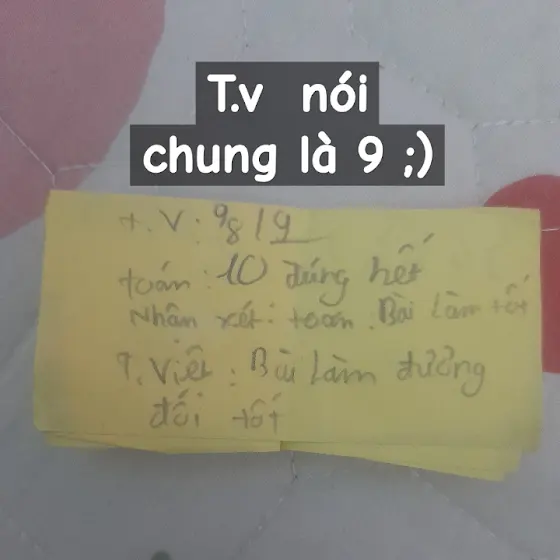 T.v nói
chung là 9 ;)
t.V: 9/8 | 9
toán: 10 đúng hết
Nhận xét: toán. Bài làm tốt
T. Việt: Bài làm đưỡng
đối tốt